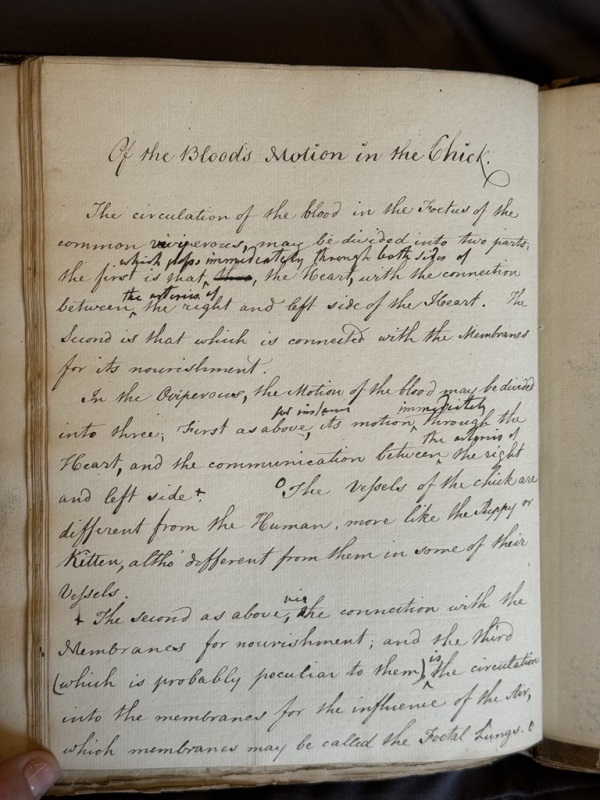 Of the Blood's Motion in the Chick.
The circulation of the blood in the Foetus of the
common viviperous, may be divided into two parts;
which pass immediately through both sides of
the first is that, the Heart, with the connection
the arteries of
between the right and left side of the Heart. The
Second is that which is connected with the Membranes
for its nourishment.
In the Oviperous, the Motion of the blood may be divided
for instance immediately
into three; First as above, its motion through the
the arteries of
Heart, and the communication between the right
and left side +. O The Vessels of the chick are
different from the Human, more like the Puppy or
Kitten, altho' different from them in some of their
Vessels.
+ The second as above, viz
the connection with the
Membranes for nourishment; and the third
is
(which is probably peculiar to them), the circulation
into the membranes for the influence of the Air,
which membranes may be called the Foetal Lungs. O